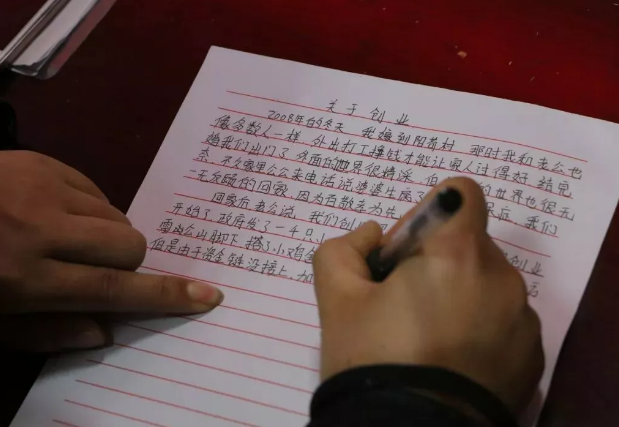 关于创业
2008年的冬天 我嫁到阳苗村 那时我和老公也
像多数人一样 外出打工挣钱才能让家人过得好 结完
婚我们出门了 外面的世界很精采 但 的世界也很无
奈 不久家里公公来电话说婆婆生病了 我们
一无反顾的回家 因为百善孝为先
回家后 老公说 我们创业 创业
开始了 政府发了一千只
雷山公山脚下 搭了小鸡 后
但是由于资金链没接上 加